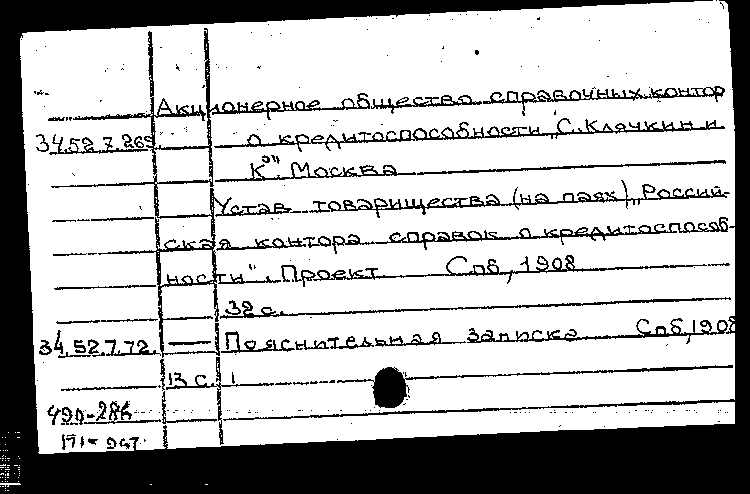 Акционерное общество справочных контор
34.52.7.269 о кредитоспособности „С. Клячкин и
К°". Москва
Устав товарищества (на паях) „Россий-
ская контора справок о кредитоспособ-
ности". Проект Спб, 1908
32 с.
34.52.7.72. — Пояснительная записка Спб, 1908
13 с.
490-286
171-947